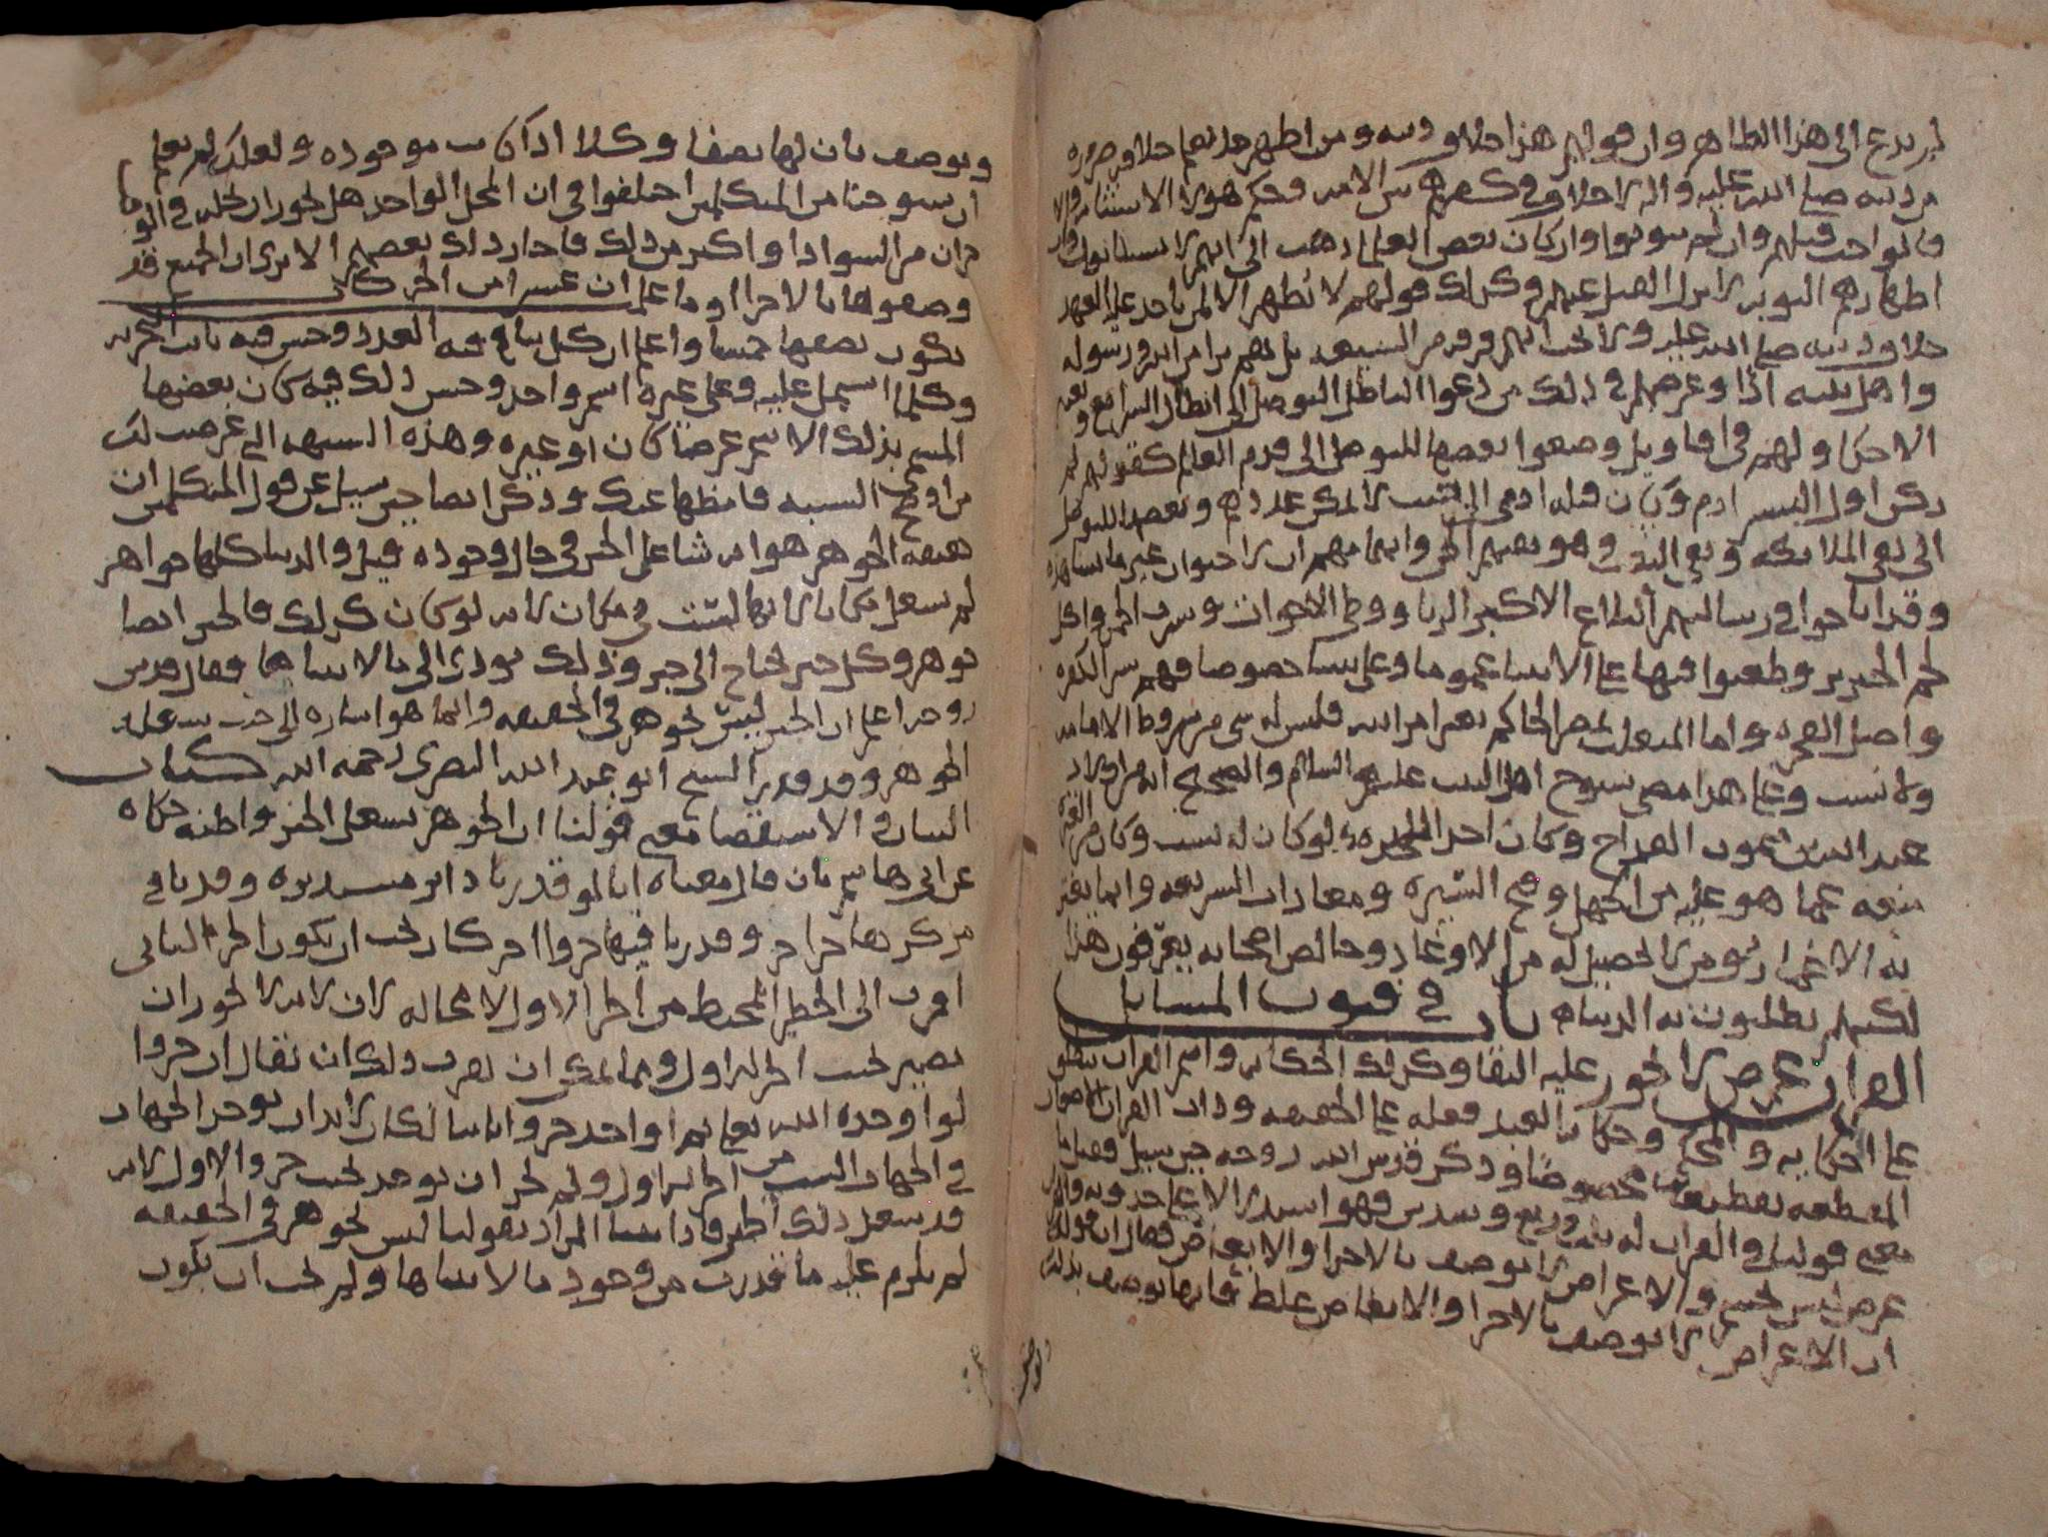 لم يدع الى هذا الظاهر وان قولهم هذا خلاف دينه ومن اظهر خلافه
من دينه صلى الله عليه واله خلاف في كفرهم بين الامه وحكم هولا الاستتابه
فان تابوا قبلهم وان لم يتوبوا وان كان بعض العلما ذهب الى انهم لا يستتابون وان
اظهارهم التوبه لا يزيل القتل عنهم وكذلك قولهم لا نظهر الا لمن ياخذ عليه العهد
خلاف دينه صلى الله عليه ولا يجب انهم فرقه من الشيعه بل هم برا من الله ورسوله
واهل بيته اذا وغرضهم في ذلك من دعوا الباطن التوصل الى ابطال الشرايع
الاحكام ولهم في اقاويل وضعوا بعضها للتوصل الى قدم العالم كقولهم لم
يكن اول البشر ادم وكان قبله ادمي الى حيث لا يمكن عددهم وبعضها للتوصل
الى نفي الملائكه ونفي الجن وهو نفيهم الجن وايهامهم ان لا حيوان غير ما نشاهده
وقد اباحوا في رسالتهم البلاغ الاكبر الزنا ووطي الاخوات وشرب الخمر واكل
لحم الخنزير وطعنوا فيها على الانبيا عموما وعلى نبينا خصوصا فهم شر الكفره
واضل الفجره واما المتغلب بمصر الحاكم بغير امر الله فليس له شي من شروط الامامه
ولا نسب وعلى هذا مضى شيوخ اهل البيت عليهم السلام والصحيح انه من اولاد
عبد الله بن ميمون القداح وكان احد الملحده ولو كان له نسب وكان من
منعه عما هو عليه من الجهل وقبح السيره ومعاداه الشريعه وانما يغتر
به الاغمار ومن لا تحصيل له من الاوغاد وخالص اصحابه يعرفون هذا
لكنهم يطلبون به الدنيا باب في فنون المسايل
القران عرض لا يجوز عليه البقا وكذلك الحكايه واسم القران يطلق
على الحكايه والمحكي وحكايه العبد فعله على الحقيقه وذات القران الاصوات
المقطعه تقطيعا مخصوصا وذكر قدس الله روحه حين سيل فقيل ما
معنى قولنا في القران له ثلث وربع وسدس فهو استدلالا على حدوثه والقران
عرض ليس بجسم والاعراض لا توصف بالاجزا والابعاض فقال ان قولك
ان الاعراض لا توصف بالاجزا والابعاض غلط فانها توصف بذلك
وتوصف بان لها نصفا وكلا اذا كانت موجوده ولعلك لم تعلم
ان شيوخنا من المتكلمين اختلفوا في ان المحل الواحد هل يجوز ان يحله في الوقت
جزان من السواد او اكثر من ذلك فاجاز ذلك بعضهم الا ترى ان الجميع قد
وصفوها بالاجزا او ما علمت ان عشرا من الحركات
تكون نصفها خمسا واعلم ان كل ما وقع فيه العدد وحسن فيه باب التجزيه
وكلما اشتمل عليه وعلى غيره اسم واحد وحسن ذلك فيه كان بعضها
المسمى بذلك الاسم عرضا كان او غيره وهذه الشبهه التي عرضت لك
من اوضح الشبه فاحفظها عنك وذكر ايضا حين سيل عن قول المتكلمين ان
صفه الجوهر هو ان يشاغل الحيز في حال وجوده قيل والدنيا كلها جواهر
لم تشغل مكانا لانها ليست في مكان لانه لو كان كذلك فالحيز ايضا
جوهر وكل حيز يحتاج الى حيز وذلك يودي الى ما لا يتناها فقال قدس
روحه اعلم ان الحيز ليس بجوهر في الحقيقه وانما هو اشاره الى حيث يشغله
الجوهر وقد قدر الشيخ ابو عبد الله البصري رحمه الله كتاب
البيان في الاستقصا معنى قولنا ان الجوهر يشغل الحيز واظنه حكاه
عن ابي هاشم بان قال معناه انا لو قدرنا دايره مستديره وقدرنا في
مركزها جزا وقدرنا فيها جزوا اخر كان يجب ان يكون الجزو الثاني
اقرب الى الخط المحيط من الجزو الاول لا محاله لان لانه لا يجوز ان
يصير بحيث الجزو الاول ومما يمكن ان نقرب ذلك ان نقال ان جزوا
لو اوجده الله تعالى ثم اوجد جزوا ثانيا لكان لا بد ان يوجد الجهات
في الجهات الست من الجزو الاول ولم يجز ان يوجد بحيث الجزو الاول لانه
قد شغل ذلك الحيز فاذا بينا المراد بقولنا ليس بجوهر في الحقيقه
لم يلزم عليه ما قدرت من وجود ما لا يتناها ولم يجب ان يكون